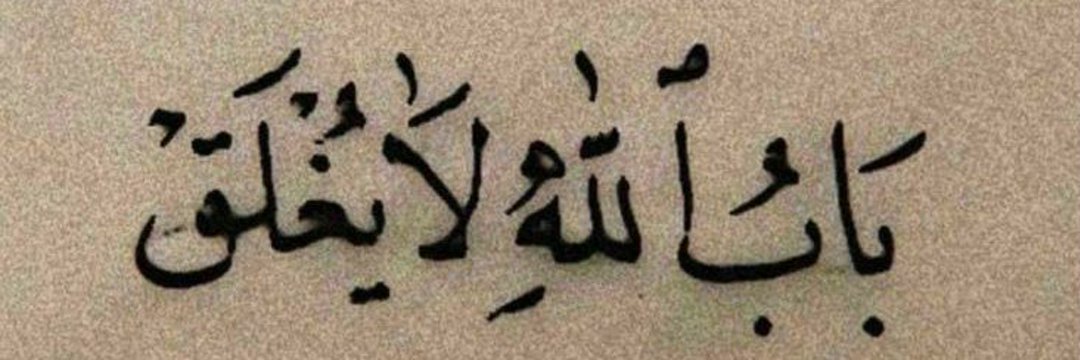 بَابُ ٱللّٰهِ لَا يُغْلَقْ